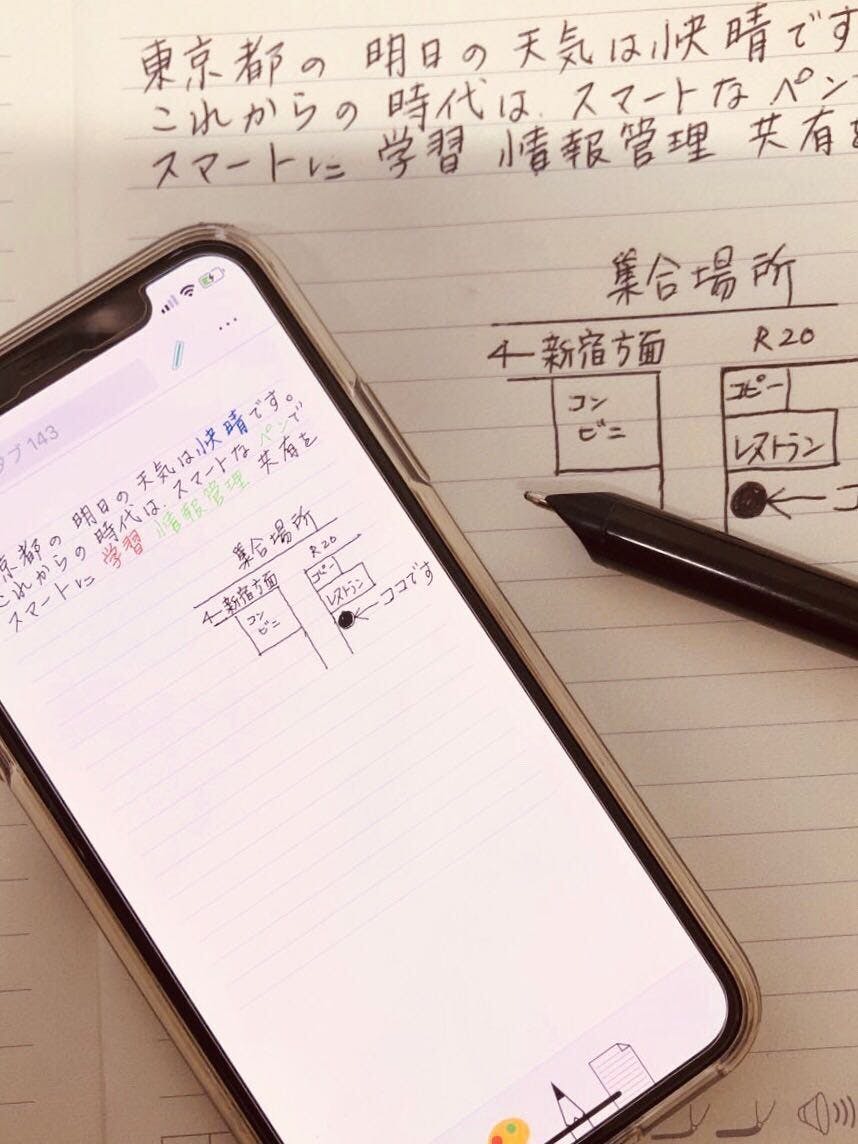 東京都の 明日の 天気は快晴です
これからの 時代は、スマートな ペンで
スマートに 学習 情報管理 共有を
集合場所
←新宿方面
R20
コン
ビニ
コピー
レストラン
←コ
タブ 143
京都の 明日の 天気は快晴です。
これからの 時代は、スマートな ペンで
スマートに 学習 情報管理 共有を
集合場所
←新宿方面
R20
コン
ビニ
コピー
レストラン
←ココです